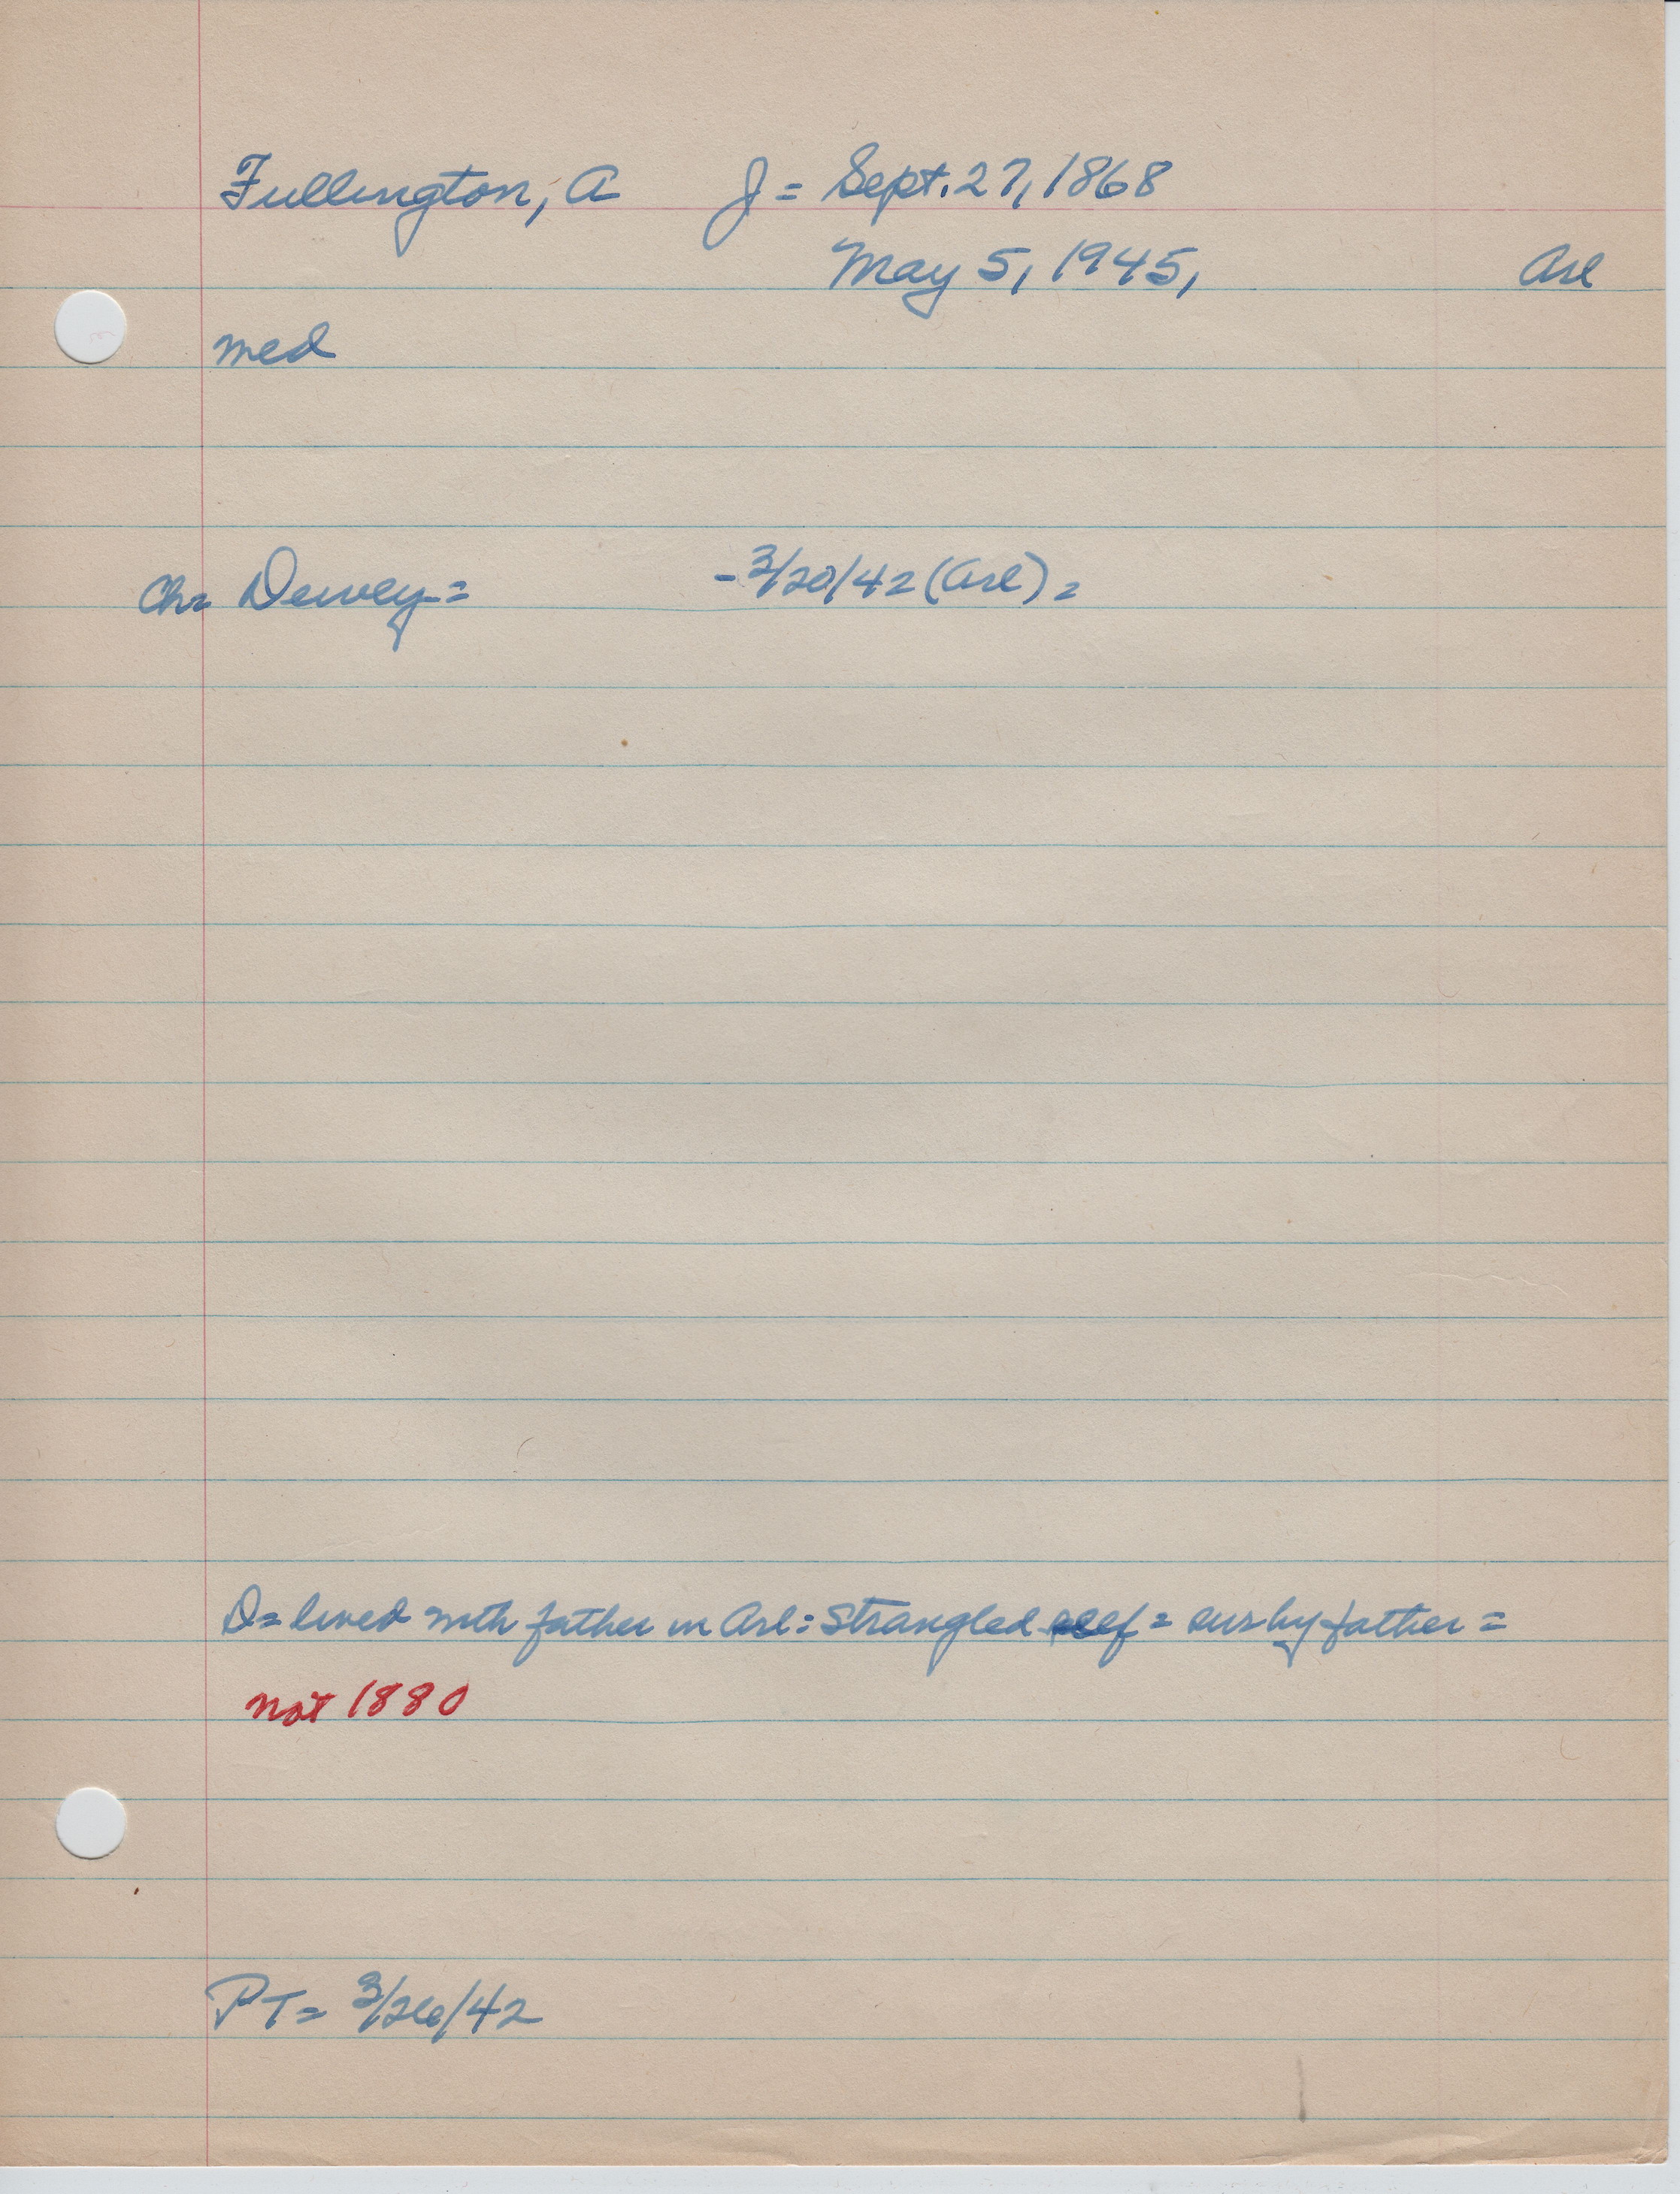 Fullington, A J = Sept. 27, 1868
May 5, 1945, Arl
med
Ch= Dewey = - 3/20/42 (Arl) =
D= lived with father in Arl: Strangled self = surby father =
not 1880
PT= 3/26/42